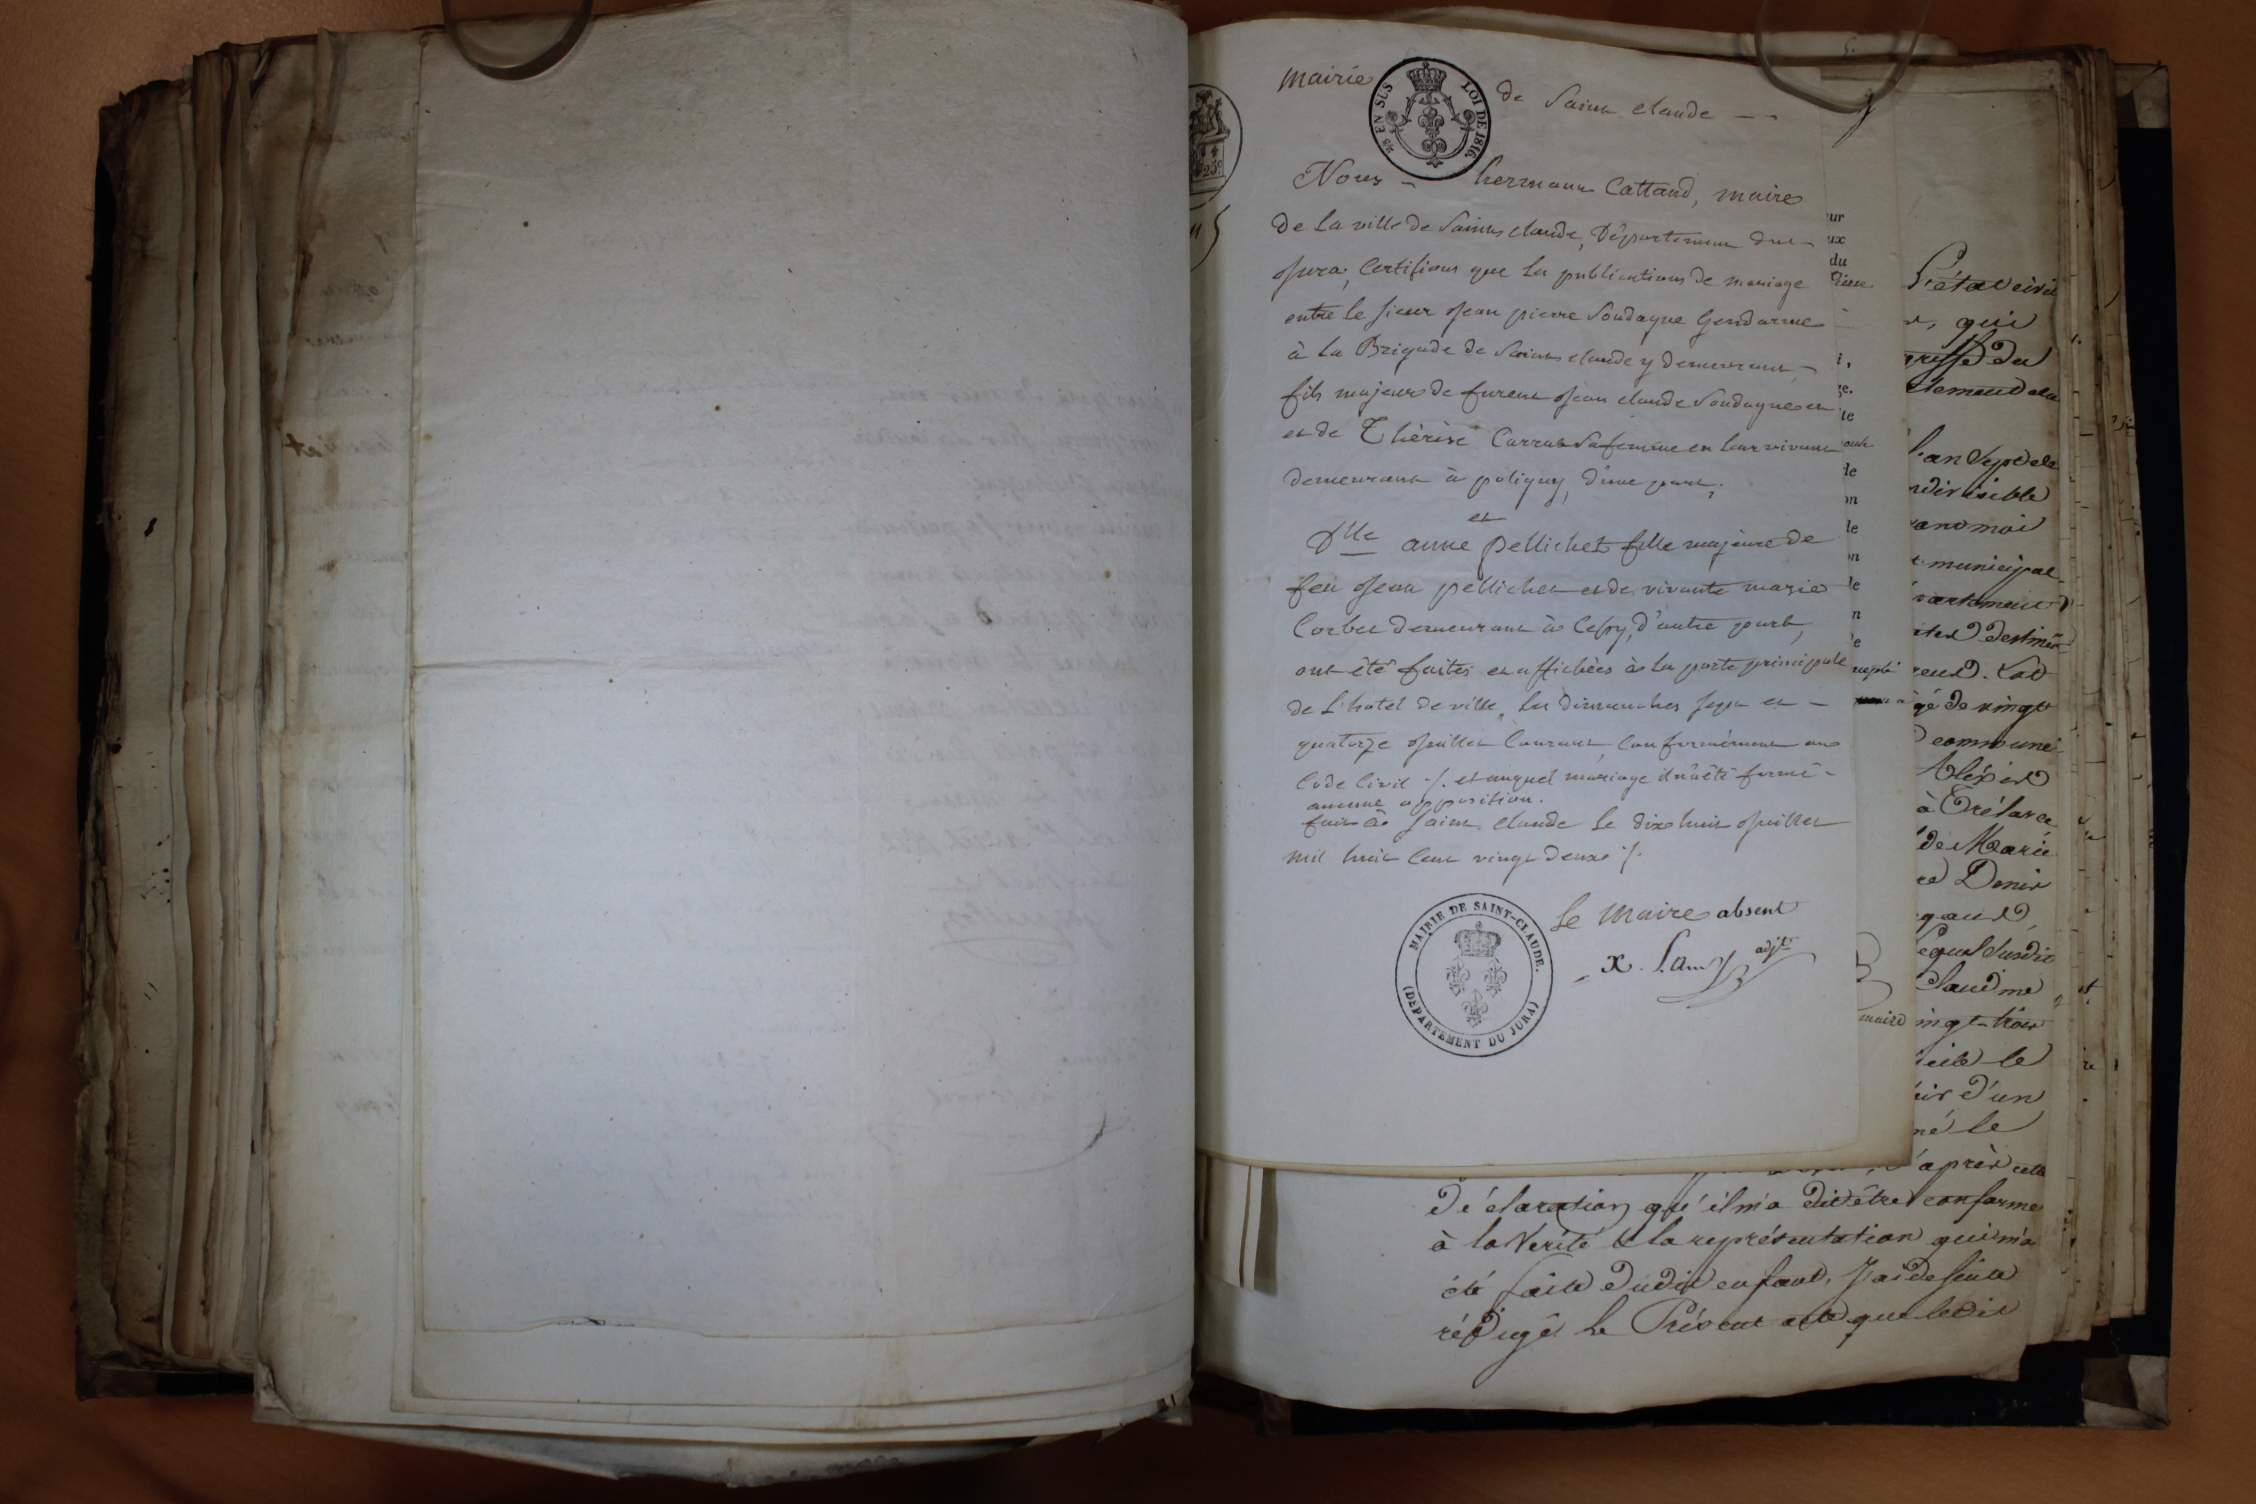 mairie de Saint Claude
25 EN SUS LOI DE 1816.
Nous hermann Cattand, maire
de la ville de Saint Claude, Département du
Jura, Certifions que les publications de mariage
entre le sieur Jean pierre Soudagne Gendarme
à la Brigade de Saint Claude y demeurant
fils majeur de furent Jean Claude Soudagne et
et de Thérèse Carrat sa femme en leur vivant
demeurant à poligny, d'une part;
et
Dlle anne pellichet fille majeure de
feu Jean pellichet et de vivante marie
Corbet demeurant à Cesy, d'autre part,
ont été faites et affichées à la porte principale
de L'hotel de ville, les dimanches sept et
quatorze Juillet Courant, Conformément au
Code Civil /. et auquel mariage il n'a été formé
aucune opposition.
fait à Saint Claude le dix huit Juillet
mil huit Cent vingt deux /.
Le Maire absent
x. Lamy adjt
MAIRIE DE SAINT-CLAUDE.
(DÉPARTEMENT DU JURA)
L'état civil
qui
du
L'an Sept de la
indivisible
municipal
âgé de vingt
commune
à
de Marie
Denis
Lequel Susdit
Claudine
vingt-trois
le
d'un
né le
d'après cette
Déclaration qu'il m'a dit être conforme
à la Vérité & la représentation qui m'a
été faite dudit enfant, J'ai de suite
rédigé le Présent acte que ledit